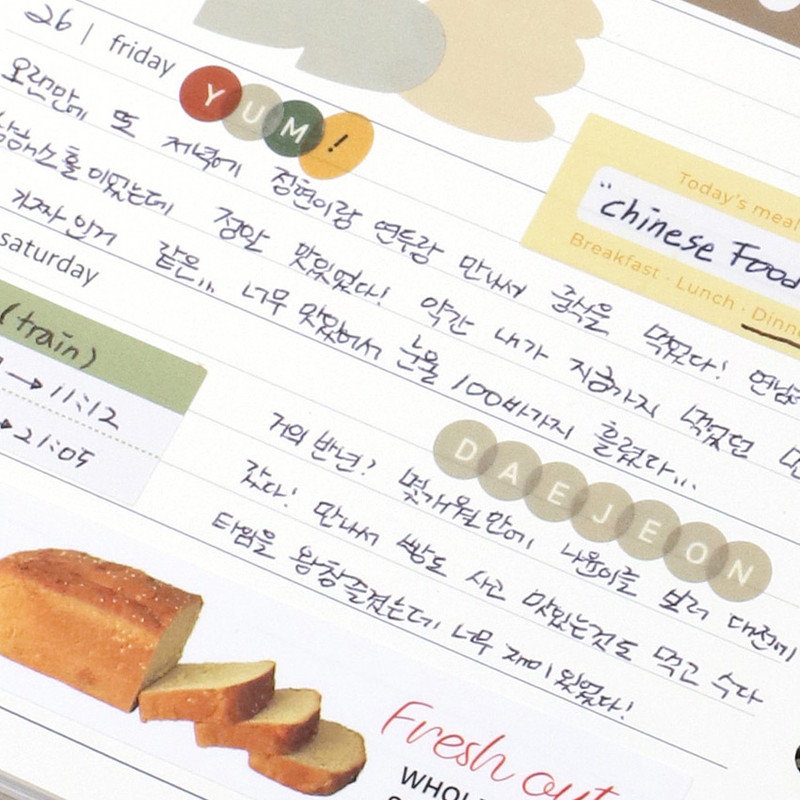 26 | friday
YUM!
Today's meal
"chinese Food
Breakfast · Lunch · Dinn
오랜만에 또 저녁에 정현이랑 연두랑 만나서 중식을 먹었다! 연남
이었는데 정말 맛있었다! 약간 내가 지금까지 먹었던
가짜인거 같은... 너무 맛있어서 눈물 100바가지 흘렸다...
saturday
(train)
→ 11:12
→ 21:05
DAEJEON
거의 반년? 몇개월만에 나윤이를 보러 대전에
갔다! 만나서 빵도 사고 맛있는것도 먹고 수다
타임을 왕창 즐겼는데 너무 재미있었다!
Fresh out
WHOL